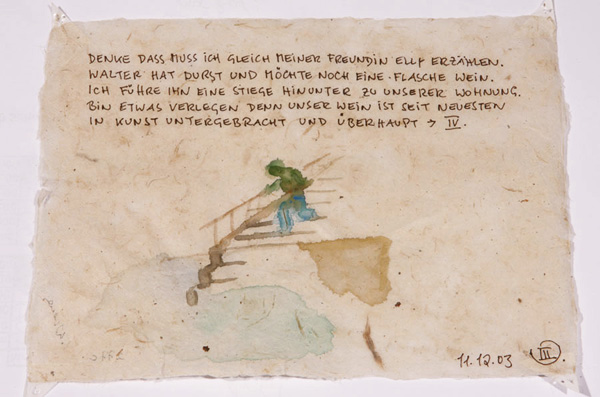 DENKE DASS MUSS ICH GLEICH MEINER FREUNDIN ELLY ERZÄHLEN.
WALTER HAT DURST UND MÖCHTE NOCH EINE FLASCHE WEIN.
ICH FÜHRE IHN EINE STIEGE HINUNTER ZU UNSERER WOHNUNG.
BIN ETWAS VERLEGEN DENN UNSER WEIN IST SEIT NEUESTEN
IN KUNST UNTERGEBRACHT UND ÜBERHAUPT → IV.
11.12.03 III.